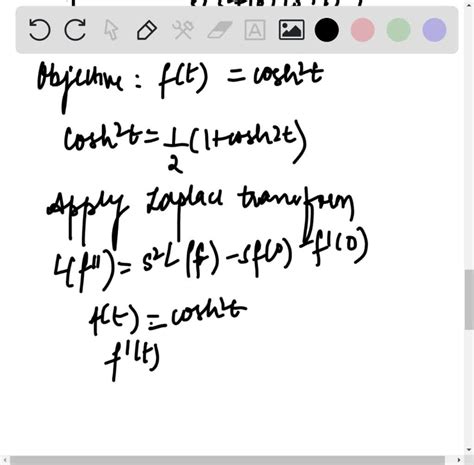 Objective : f(t) = cosh²t
cosh²t = 1/2 (1+cosh2t)
Apply Laplace transform
L(f") = s²L(f) - sf(0) - f'(0)
f(t) = cosh²t
f'(t)